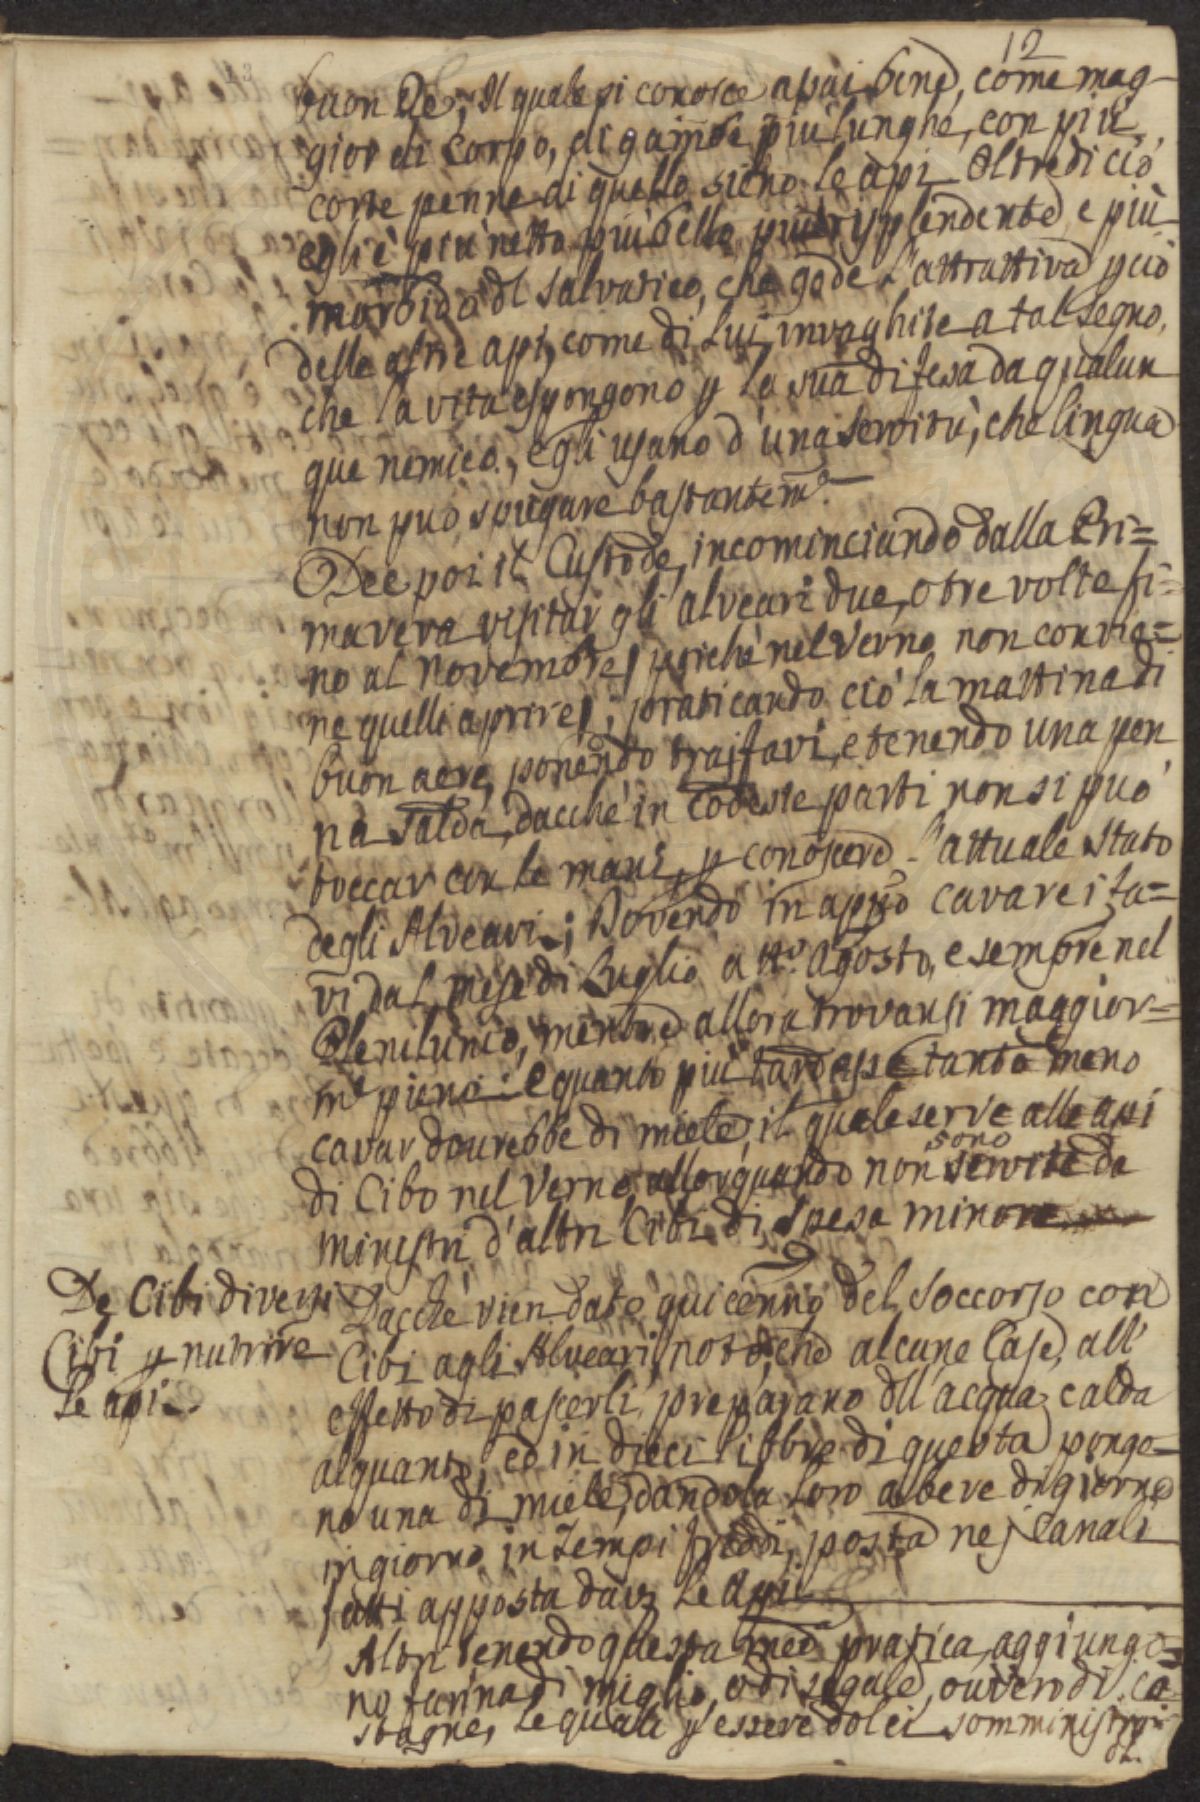 12
buon Rè, il quale si conosce assai bene, come mag-
gior di Corpo, di gambe più lunghe, con più
corte penne di quello sieno le api. Oltre di ciò
egli è più netto, più bello, più risplendente, e più
morbido del salvatico, che gode l'attrattiva p ciò
delle altre api, come di lui invaghite a tal segno,
che la vita espongono p la sua difesa da qualun
que nemico, e gli usano d'una servitù, che lingua
non può spiegare bastantemᵉ.
Dee poi il Custode, incominciando dalla Pri=
mavera visitar gli alveari due, o tre volte fi=
no al Novembre (poiché nel Verno non convie=
ne quelli aprire); praticando ciò la mattina di
buon aere, ponendo tra i favi, e tenendo una pen
na salda, dacché in codeste parti non si può
toccar con le mani, p conoscere l'attuale stato
degli Alveari; Dovendo in appᵒ cavare i fa=
vi dal mese di Luglio a ttᵒ Agosto, e sempre nel
Plenilunio, mentre allora trovansi maggior=
mᵉ pieni: e quanto più tardasse tanto meno
cavar dourebbe di miele, il quale serve alle api
di Cibo nel Verno, allorquando non sono servite da
ministri d'altri Cibi di spesa minore
De Cibi diversi
Cibi p nutrire
le api.
Dacché vien dato qui cenno del soccorso con
Cibi agli Alveari, noto, che alcune Case, all'
effetto di pascerli, preparano dell'acqua calda
alquanto, ed in dieci libbre di questa pongo=
no una di miele, dandola loro a bere di giorno
in giorno in tempi freddi, posta nei Canali
fatti apposta da le Api
Altri tenendo questa medᵃ pratica, aggiungo=
no farina di miglio, o di segale, ouvero di ca=
stagne, le quali p essere dolci somministra